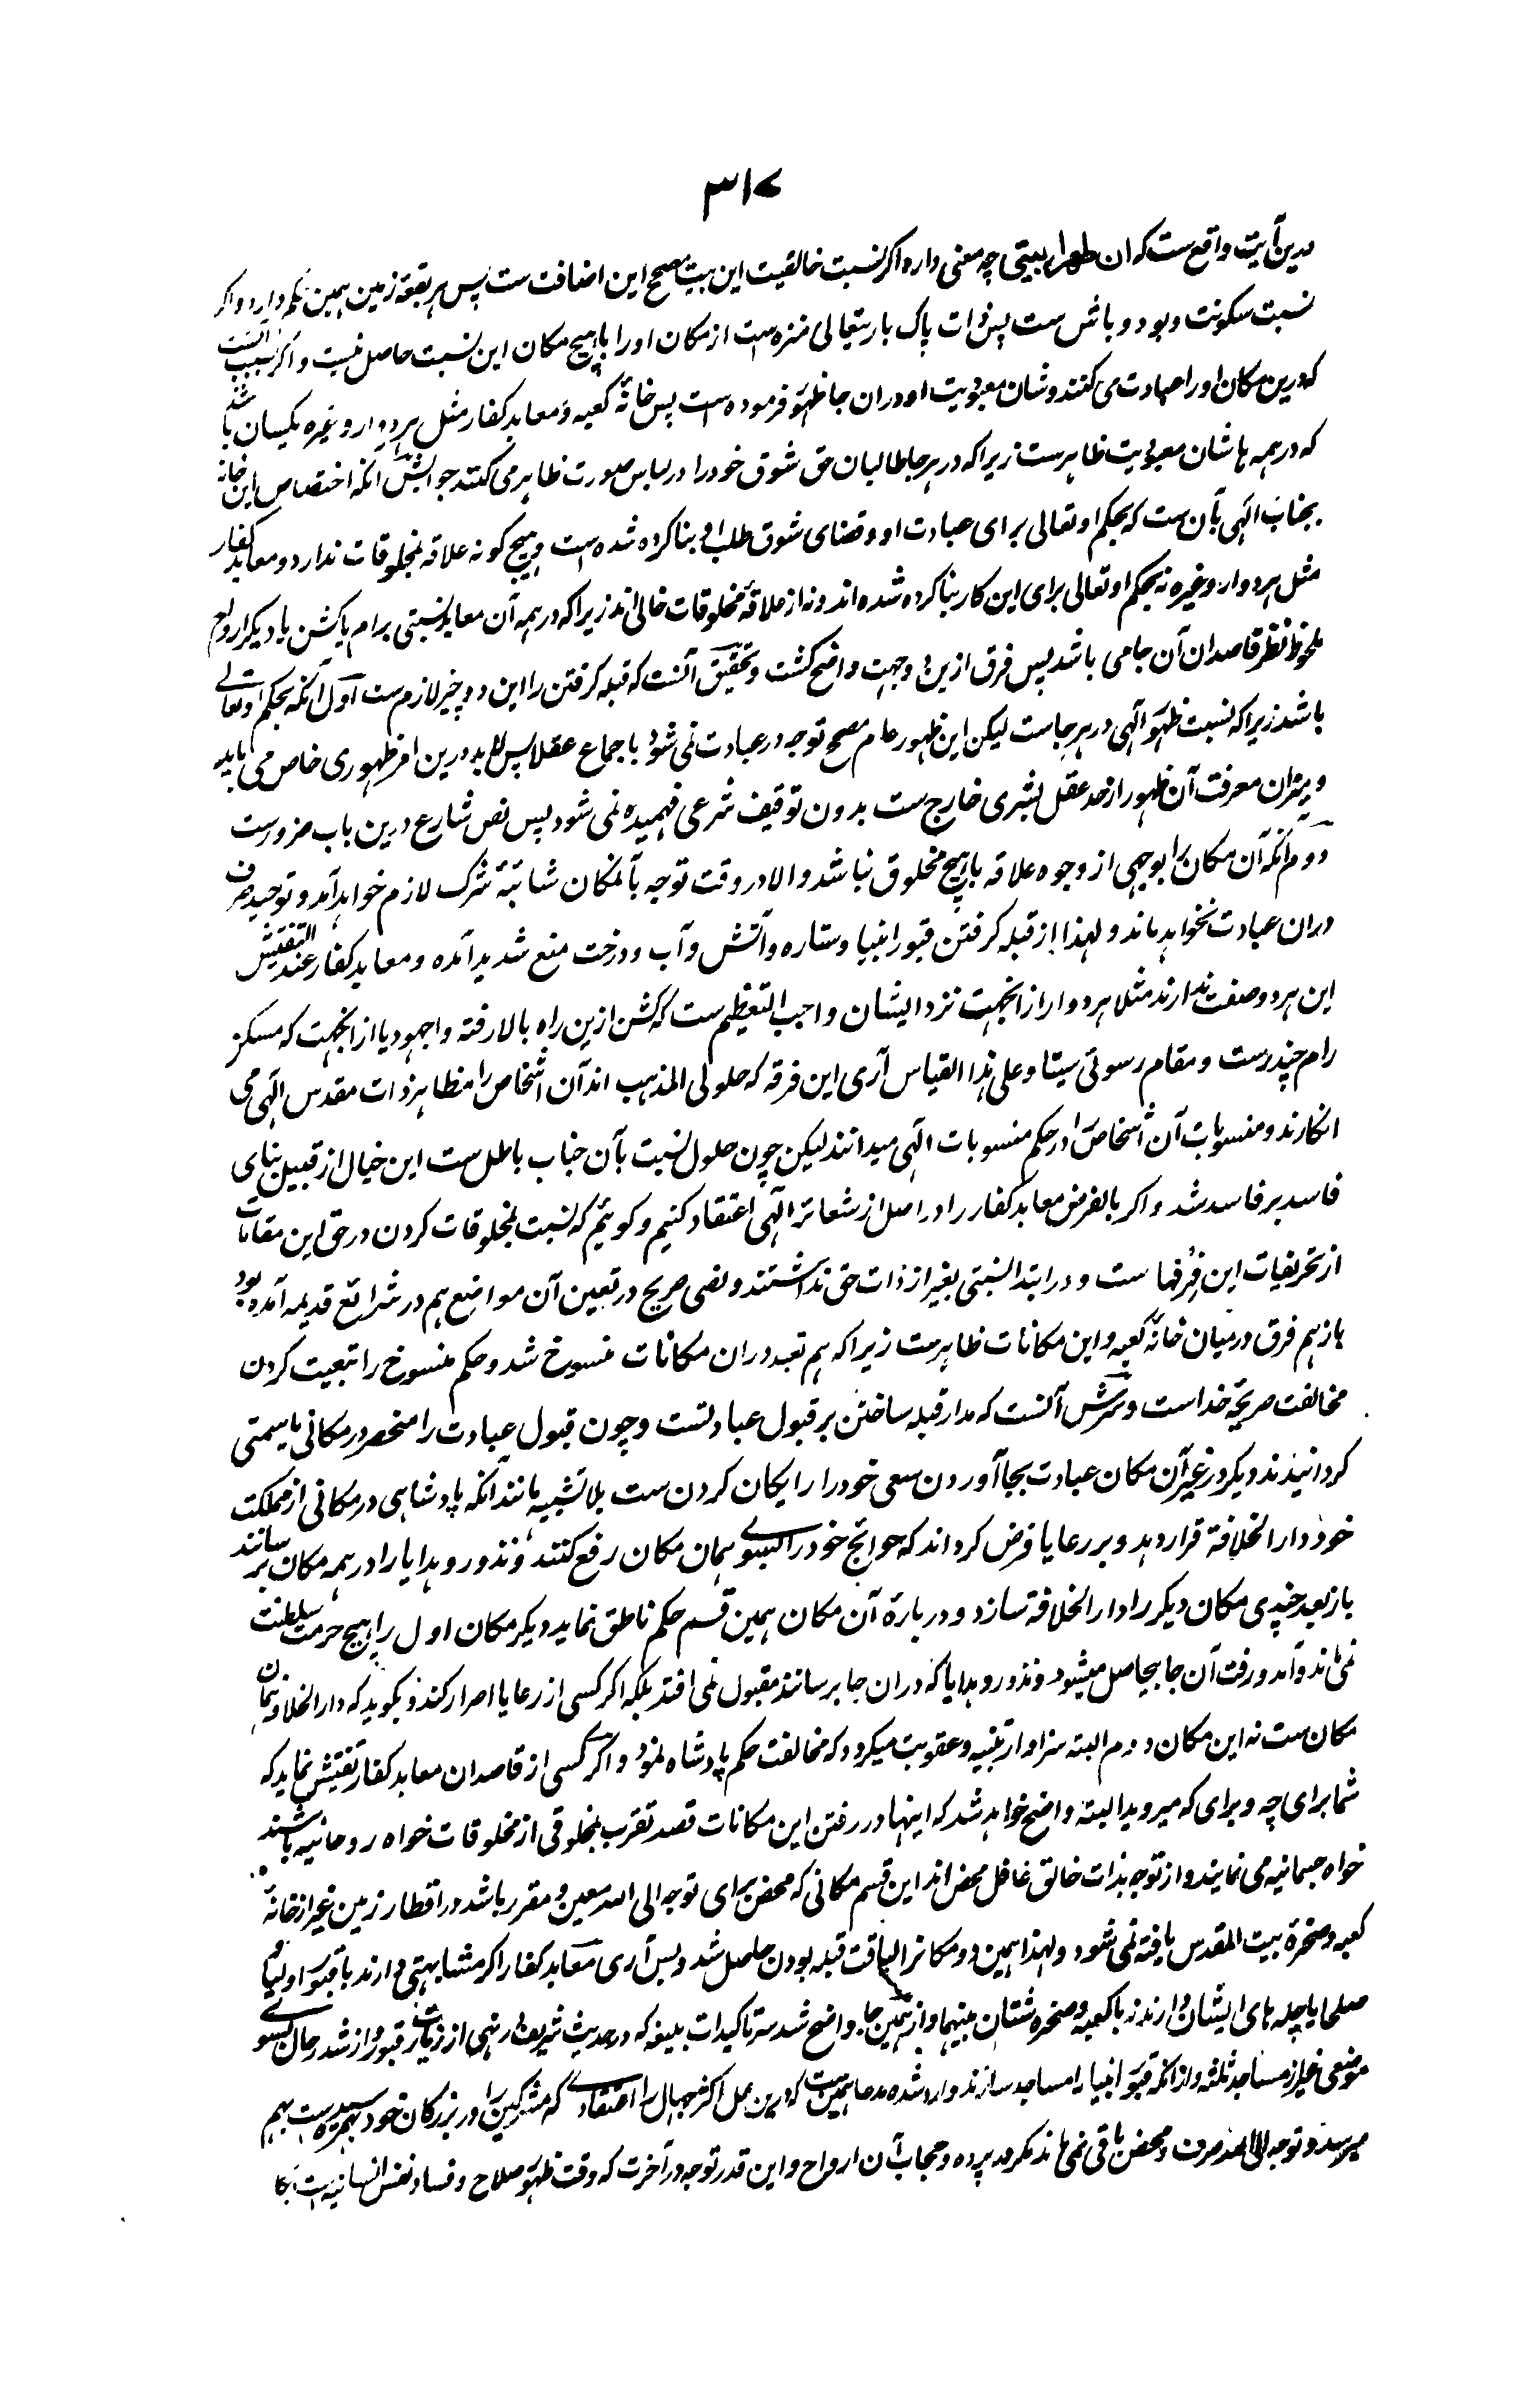 ۳۱۷
درین آیت واقع ست که ان طهرا بیتی چه معنی دارد اگر نسبت خالقیت این بیت مصحح این اضافت ست پس هر بقعه زمین همین حکم دارد و اگر
نسبت سکونت و بود و باش ست پس ذات پاک باریتعالی منزه است از مکان او را با هیچ مکان این نسبت حاصل نیست و اگر بسبب آنست
که درین مکان او را عبادت می کنند و شان معبودیت او دران جا ظهور فرموده است پس خانهٔ کعبه و معابد کفار مثل هردوار و غیره یکسان باشد
که در همه ها شان معبودیت ظاهرست زیرا که در هر جا طالبان حق شوق خود را در لباس صورت ظاهر می کنند جوابش آنکه اختصاص این خانه
بجناب الهی بآن ست که بحکم او تعالی برای عبادت او و قضای شوق طلب او بنا کرده شده است و هیچ گونه علاقه بمخلوقات ندارد و معابد کفار
مثل هردوار و غیره نه بحکم او تعالی برای این کار بنا کرده شده اند و نه از علاقهٔ مخلوقات خالی اند زیرا که در همه آن معابد نسبتی برام یا کشن یا دیگر ارواح
ملحوظ نظر قاصدان آن جا می باشد پس فرق ازین دو جهت واضح گشت و تحقیق آنست که قبله گرفتن را این دو چیز لازم ست اول آنکه بحکم او تعالی
باشد زیرا که نسبت ظهور الهی در هر جاست لیکن این ظهور عام مصحح توجه در عبادت نمی شود باجماع عقلا پس لابد درین امر ظهوری خاص می باید
و میزان معرفت آن ظهور از حد عقل بشری خارج ست بدون توقیف شرعی فهمیده نمی شود پس نص شارع درین باب ضرورست
دوم آنکه آن مکان را بوجهی از وجوه علاقه با هیچ مخلوق نباشد و الا در وقت توجه بآنمکان شائبهٔ شرک لازم خواهد آمد و توحید صرف
دران عبادت نخواهد ماند و لهذا از قبله گرفتن قبور انبیا و ستاره و آتش و آب و درخت منع شدید آمده و معابد کفار عند التفتیش
این هر دو صفت ندارند مثلا هردوار ازانجهت نزد ایشان واجب التعظیم ست که کشن ازین راه بالا رفته و اجهودیا ازانجهت که مسکن
رام چندرست و مقام رسوئی سیتا و علی هذا القیاس آری این فرقه که حلولی المذهب اند آن اشخاص را مظاهر ذات مقدس الهی می
انگارند و منسوبات آن اشخاص را در حکم منسوبات الهی میدانند لیکن چون حلول نسبت بآن جناب باطل ست این خیال از قبیل بنای
فاسد بر فاسد شد و اگر بالفرض معابد کفار را در اصل از شعائر الهی اعتقاد کنیم و گوئیم که نسبت بمخلوقات کردن در حق این مقامات
از تحریفات این فرقها ست و در ابتدا نسبتی بغیر از ذات حق نداشتند و نصی صریح در تعیین آن مواضع هم در شرائع قدیمه آمده بود
باز هم فرق درمیان خانهٔ کعبه و این مکانات ظاهرست زیرا که هم تعبد دران مکانات منسوخ شد و حکم منسوخ را تبعیت کردن
مخالفت صریحه خداست و سرش آنست که مدار قبله ساختن بر قبول عبادتست و چون قبول عبادت را منحصر در مکانی یا سمتی
گردانیدند دیگر در غیر آن مکان عبادت بجا آوردن سعی خود را رایگان کردن ست بلا تشبیه مانند آنکه پادشاهی در مکانی از مملکت
خود دار الخلافة قرار دهد و بر رعایا فرض گرداند که حوائج خود را بسوی همان مکان رفع کنند و نذور و هدایا را در همه مکان برسانند
باز بعد چندی مکان دیگر را دار الخلافة سازد و دربارهٔ آن مکان همین قسم حکم ناطق نماید دیگر مکان اول را هیچ حرمت سلطنت
نمی ماند و آمد و رفت آن جا بیحاصل میشود و نذور و هدایا که دران جا برسانند مقبول نمی افتد بلکه اگر کسی از رعایا اصرار کند و بگوید که دار الخلافه همان
مکان ست نه این مکان دوم البته سزاوار تنبیه و عقوبت میگردد که مخالفت حکم پادشاه نمود و اگر کسی از قاصدان معابد کفار تفتیش نماید که
شما برای چه و برای که میروید البته واضح خواهد شد که اینها در رفتن این مکانات قصد تقرب بمخلوقی از مخلوقات خواه روحانیه باشند
خواه جسمانیه می نمایند و از توجه بذات خالق غافل محض اند این قسم مکانی که محض برای توجه الی الله معین و مقرر باشد در اقطار زمین غیر از خانهٔ
کعبه و صخرهٔ بیت المقدس یافته نمی شود و لهذا همین دو مکان را لیاقت قبله بودن حاصل شد و بس آری معابد کفار اگر مشابهتی دارند با قبور اولیا و
صلحا یا چله های ایشان دارند نه با کعبه و صخره شتان بینهما و از همین جا واضح شد سر تاکیدات بلیغه که در حدیث شریف در نهی از زیارت قبور و از شد رحال بسوی
موضعی غیر از مساجد ثلثه و از آنکه قبور انبیا را مساجد سازند وارد شده مدعا همین ست که درین عمل اکثر جهال را اعتقادی که مشرکین را در بزرگان خود بهم رسیده است بهم
میرسد و توجه الی الله صرف و محض باقی نمی ماند مگر در پرده و حجاب آن ارواح و این قدر توجه در آخرت که وقت ظهور صلاح و فساد نفس انسانیه است بکا